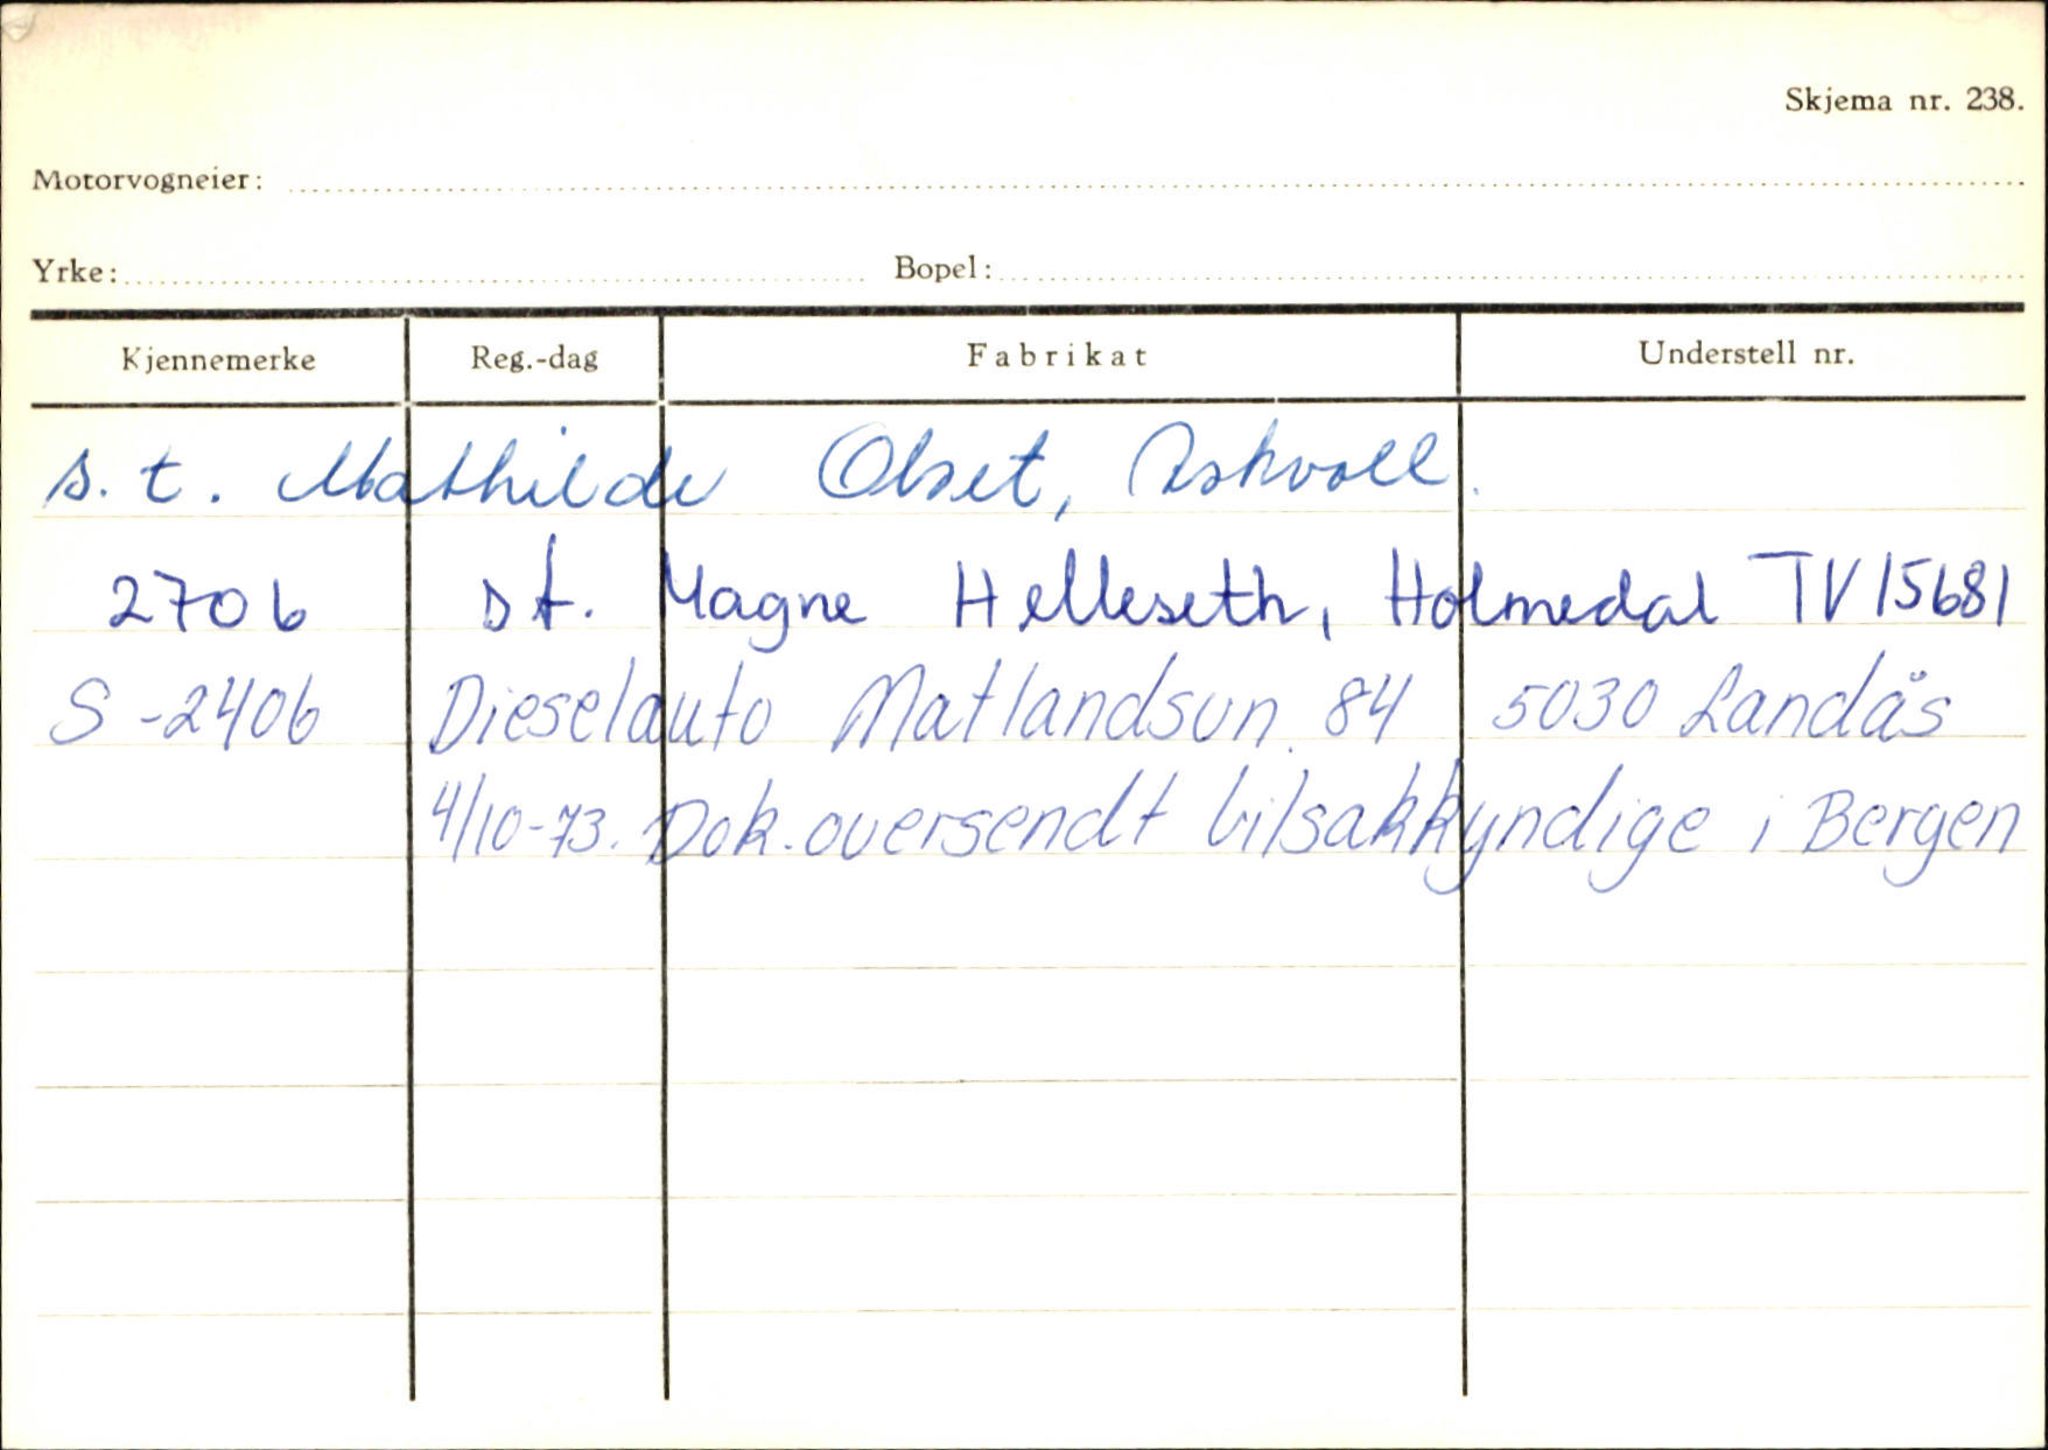 Skjema nr. 238.
Motorvogneier:
Yrke: Bopel:
Kjennemerke Reg.-dag Fabrikat Understell nr.
s. t. Mathilde Olset, Askvoll.
2706 st. Magne Helleseth, Holmedal TV15681
S-2406 Dieselauto Natlandsvn. 84 5030 Landås
4/10-73. Dok. oversendt bilsakkyndige i Bergen